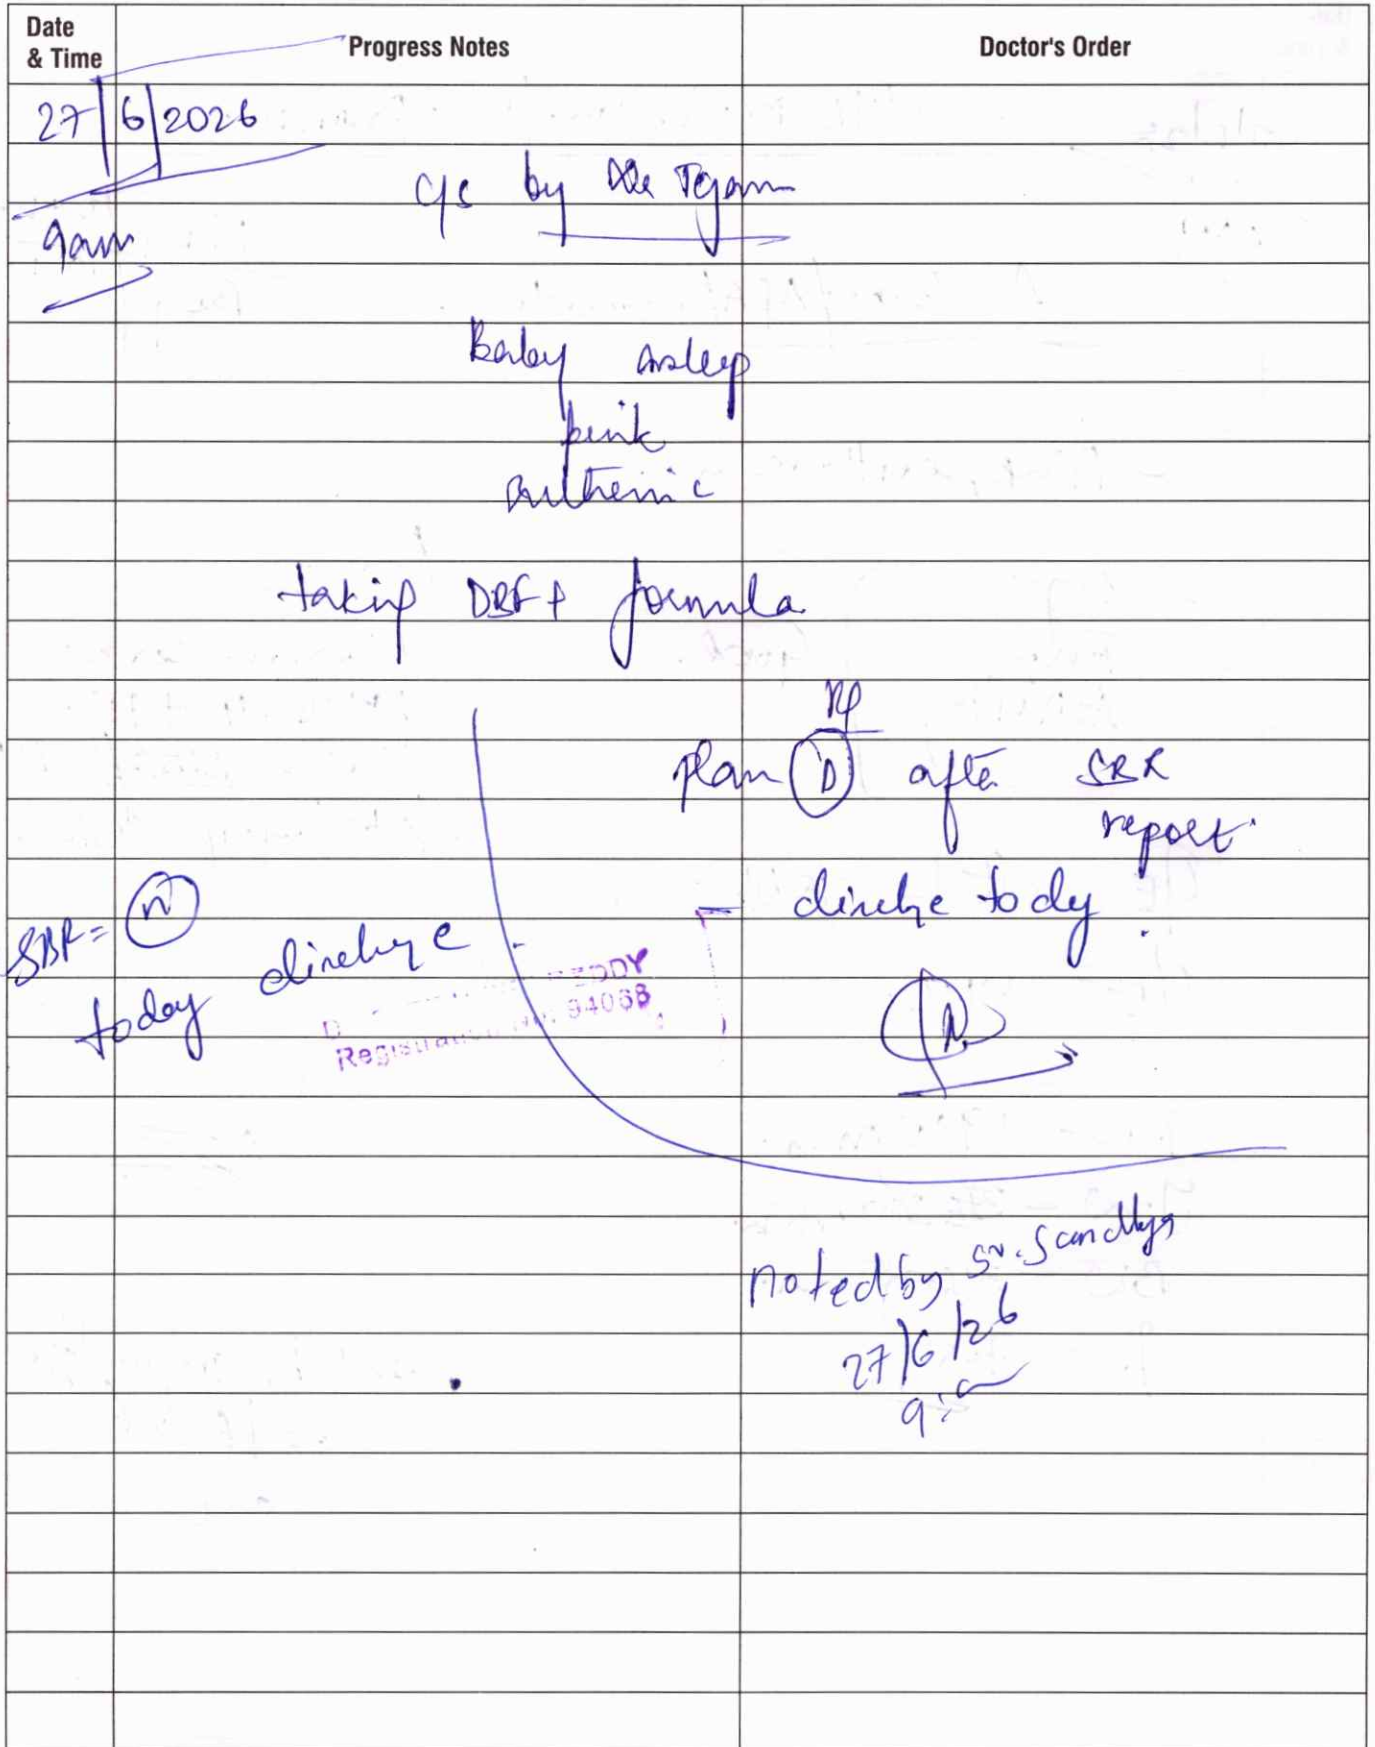 Date & Time
Progress Notes
Doctor's Order
27/6/2026
9am
c/s by Team
Baby asleep
pink
euthermic
taking DBF + formula
Plan (D) after SBR
report.
SBR = (N)
today discharge
- discharge today.
EDDY
Registration No. 94068
noted by Sr. Sandhya
27/6/26